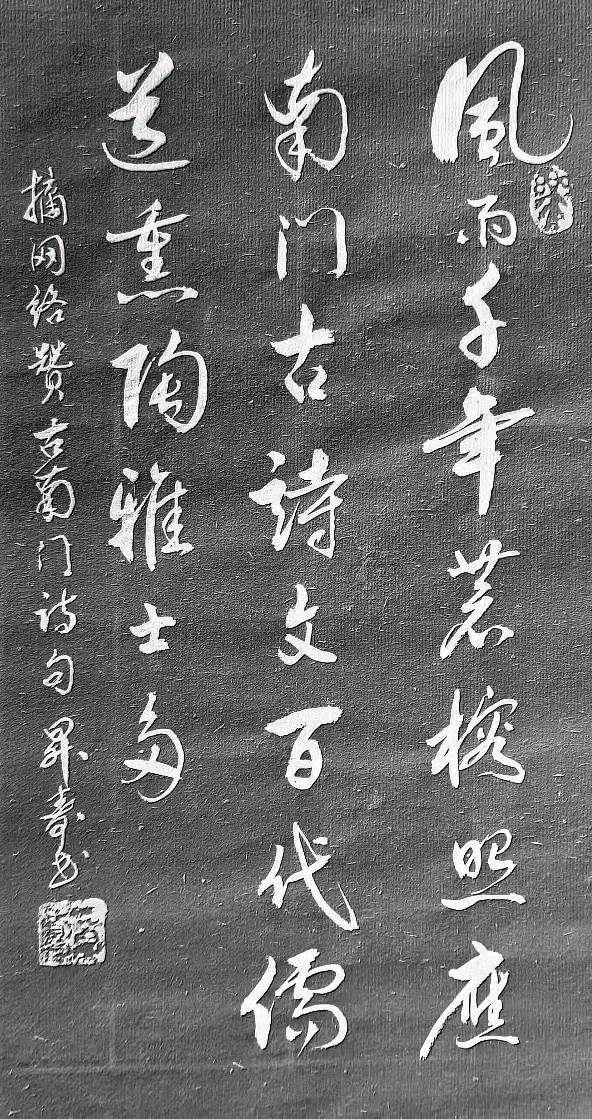 風雨千年老榕照應
南门古詩文百代儒
道熏陶雅士多
摘网络贊古南门诗句 昇壽书